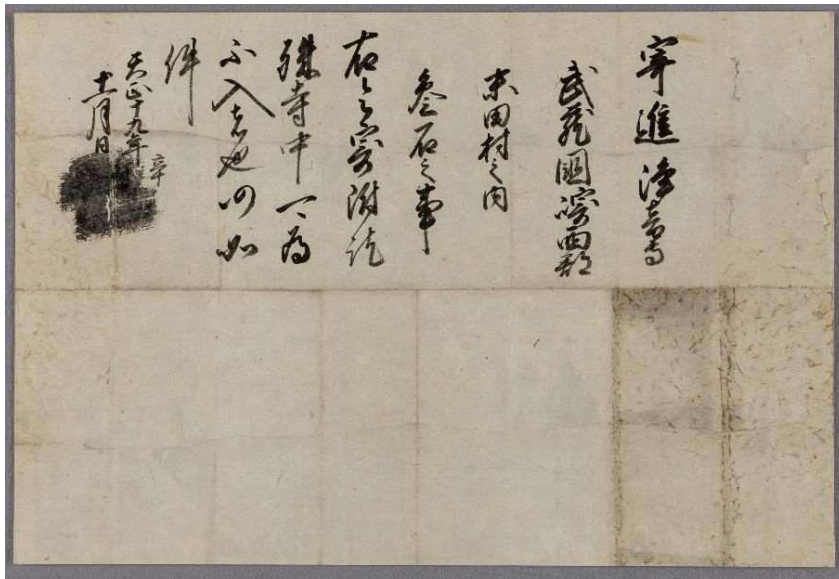 寄進
武蔵國崎西郡
末田村之内
参石之事
右令寄附訖
殊寺中可為
不入者也仍如
件
天正十九年辛
十一月日